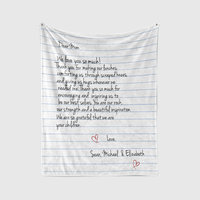 Dear Mom
We love you so much!
Thank you for making our lunches,
comforting us through scraped knees,
and giving us hugs whenever we
needed one. Thank you so much for
encouraging and inspiring us to
be our best selves. You are our rock,
our strength and a beautiful inspiration.
We are so grateful that we are
your children.
Love,
Sean, Michael & Elizabeth